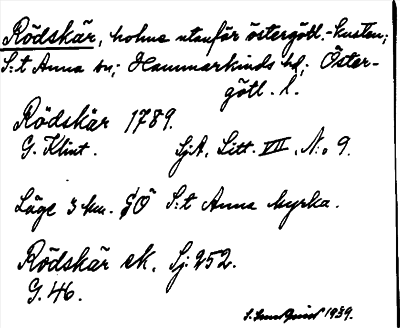 Rödskär, holme utanför östergötl.-kusten;
S:t Anna sn; Hammarkinds hd; Öster-
götl. l.
Rödskär 1789.
G. Klint. SjA, Litt. VII, N:o 9.
Läge 3 km. SÖ S:t Anna kyrka.
Rödskär ek. Sj. 252.
G. 46.
1939.